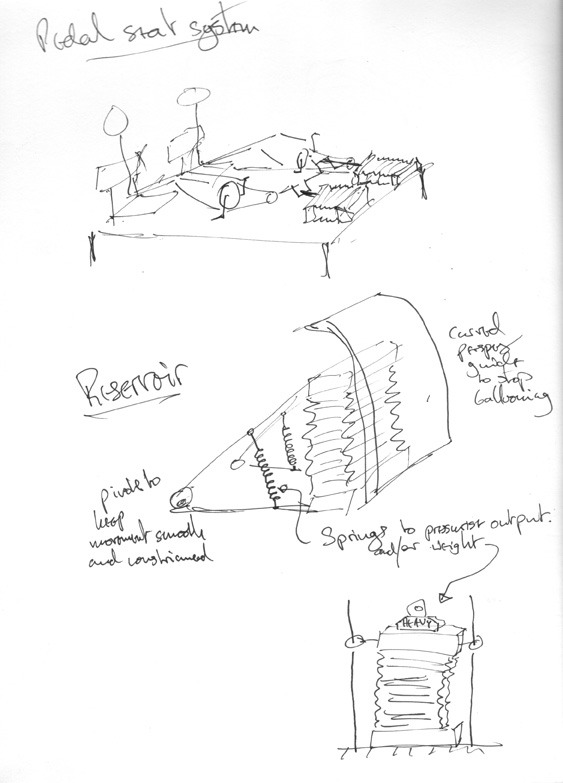 Pedal seat system
Reservoir
curved
perspex
guides
to stop
ballooning
pivots to
keep
movement smooth
and constrained
Springs to pressurise output.
and/or weight
HEAVY